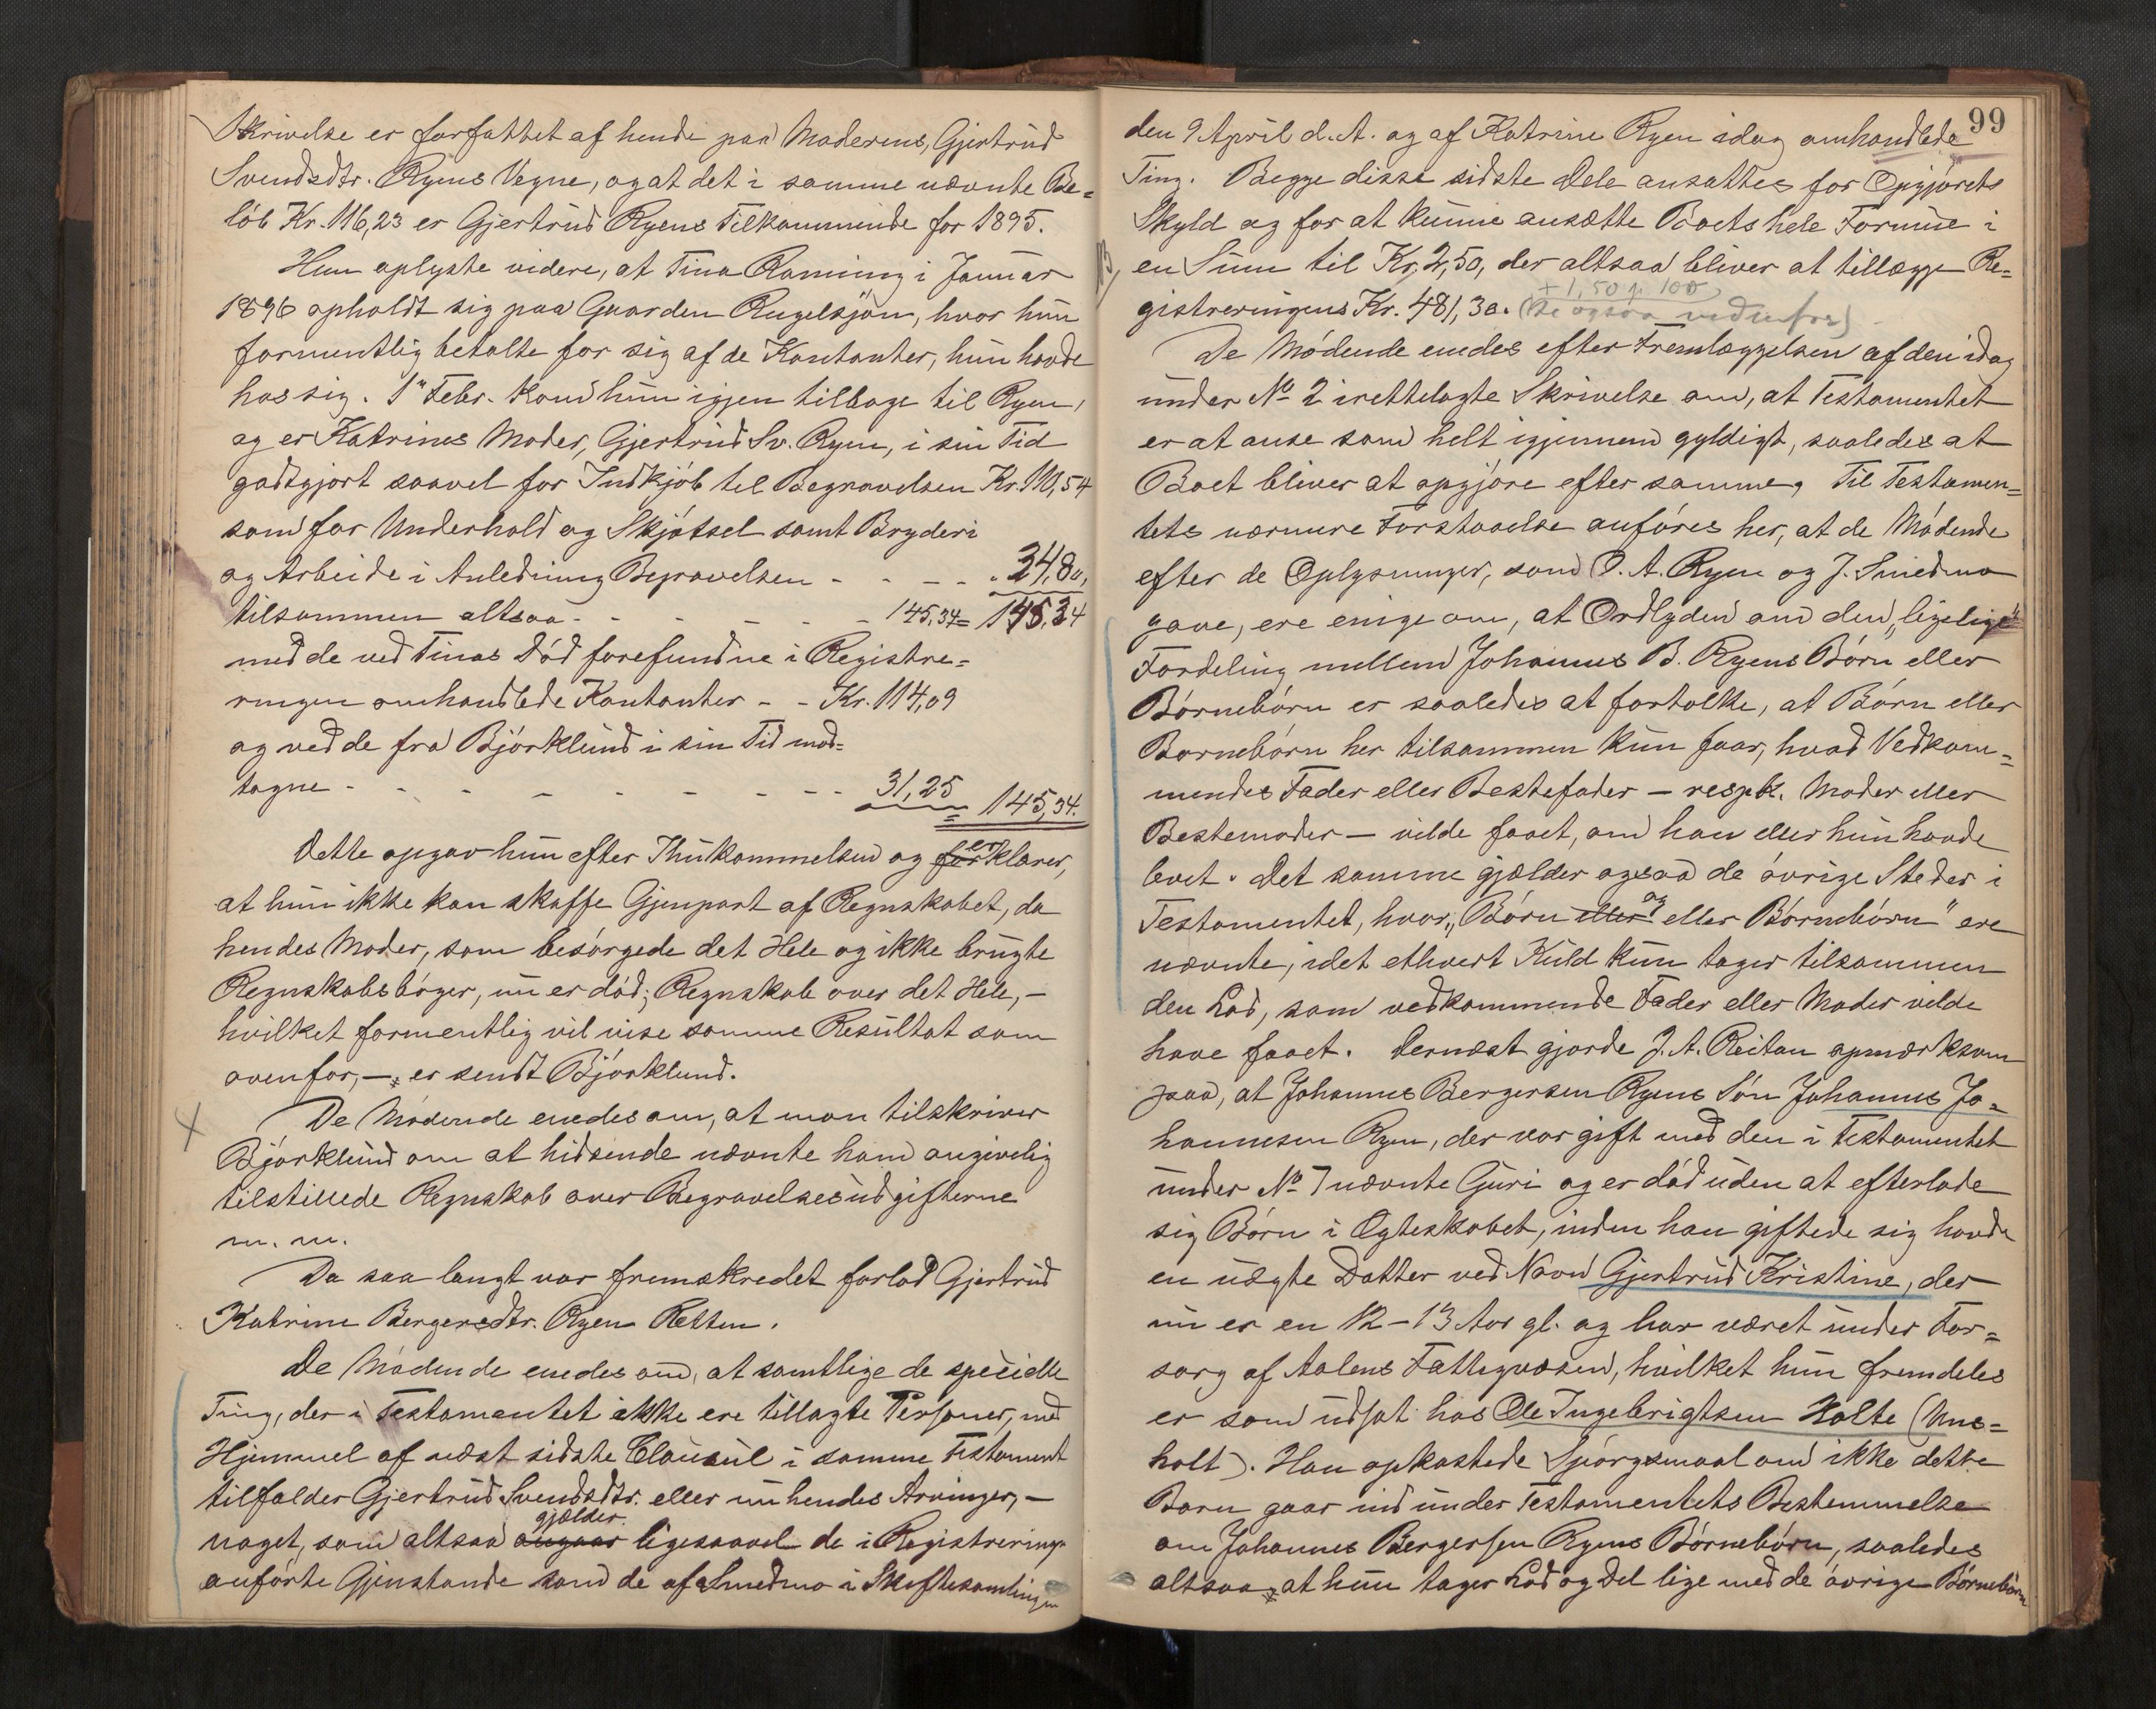 Skrivelse er forfattet af hende paa Moderens, Gjertrud
Svendsdtr. Ryens Vegne, og at det i samme nævnte Be=
løb Kr. 116,23 er Gjertrud Ryens Tilkommende for 1895.
Hun oplyste videre, at Tina Ramming i Januar
1896 opholdt sig paa Gaarden Rugelsjøen, hvor hun
formentlig betalte for sig af de Kontanter, hun havde
hos sig. 1ste Febr. kom hun igjen tilbage til Ryen,
og er Katrines Moder, Gjertrud Sv. Ryen, i sin Tid
godtgjort saavel for Indkjøb til Begravelsen Kr. 110,54
som for Underhold og Skjøtsel samt Bryderi
og Arbeide i Anledning Begravelsen - - - - 34,80,
tilsammen altsaa - - - - - 145,34 = 145,34
med de ved Tinas Død forefundne i Registre=
ringen omhandlede Kontanter - - Kr. 114,09
og ved de fra Bjørklund i sin Tid mod=
tagne - - - - - - - - 31,25 = 145,34.
Dette opgav hun efter Ihukommelsen og for erklærer,
at hun ikke kan skaffe Gjenpart af Regnskabet, da
hendes Moder, som besørgede det Hele og ikke brugte
Regnskabsbøger, nu er død; Regnskab over det Hele, -
hvilket formentlig vil vise samme Resultat som
ovenfor, - er sendt Bjørklund.
De Mødende enedes om, at man tilskriver
Bjørklund om at hidsende nævnte ham angivelig
tilstillede Regnskab over Begravelsesudgifterne
m. m.
Da saa langt var fremskredet forlod Gjertrud
Katrine Bergersdtr. Ryen Retten.
De Mødende enedes om, at samtlige de specielle
Ting, der i Testamentet ikke ere tillagte Personer, med
Hjemmel af næst sidste Clausul i samme Testament
tilfalder Gjertrud Svendsdtr. eller nu hendes Arvinger, -
noget, som altsaa angaar gjælder ligesaavel de i Registrerings
anførte Gjenstande som de af Smedmo i Skiftesamlingen
99
den 9 April d. A. og af Katrine Ryen idag omhandlede
Ting. Begge disse sidste Dele ansattes for Opgjørets
Skyld og for at kunne ansætte Boets hele Formue i
en Sum til Kr. 2,50, der altsaa bliver at tillægge Re=
+ 1,50 p 100
gistreringens Kr. 481,30. (Se ogsaa nedenfor)
De Mødende enedes efter Fremlæggelsen af den idag
under No 2 irettelagte Skrivelse om, at Testamentet
er at anse som helt igjennem gyldigt, saaledes at
Boet bliver at opgjøre efter samme. Til Testamen=
tets nærmere Forstaaelse anføres her, at de Mødende
efter de Oplysninger, som O. A. Ryen og J. Smedmo
gave, ere enige om, at Ordlyden om den „ligelige“
Fordeling mellem Johannes B. Ryens Børn eller
Børnebørn er saaledes at fortolke, at Børn eller
Børnebørn her tilsammen kun faar, hvad Vedkom=
mendes Fader eller Bestefader - respkt. Moder eller
Bestemoder - vilde faaet, om han eller hun havde
levet. Det samme gjælder ogsaa de øvrige Steder i
Testamentet, hvor „Børn eller og eller Børnebørn“ ere
nævnte, idet ethvert Kuld kun tager tilsammen
den Lod, som vedkommende Fader eller Moder vilde
have faaet. Dernæst gjorde J. A. Reitan opmærksom
paa, at Johannes Bergersen Ryens Søn Johannes Jo=
hannesen Ryen, der var gift med den i Testamentet
under No 7 nævnte Guri og er død uden at efterlade
sig Børn i Ægteskabet, inden han giftede sig havde
en uægte Datter ved Navn Gjertrud Kristine, der
nu er en 12-13 Aar gl. og har været under For=
sorg af Aalens Fattigvæsen, hvilket hun fremdeles
er som udsat hos Ole Ingebrigtsen Holte (Uns=
holt). Han opkastede Spørgsmaal om ikke dette
Barn gaar ind under Testamentets Bestemmelse
om Johannes Bergersen Ryens Børnebørn, saaledes
altsaa, at hun tager Lod og Del lige med de øvrige Børnebørn